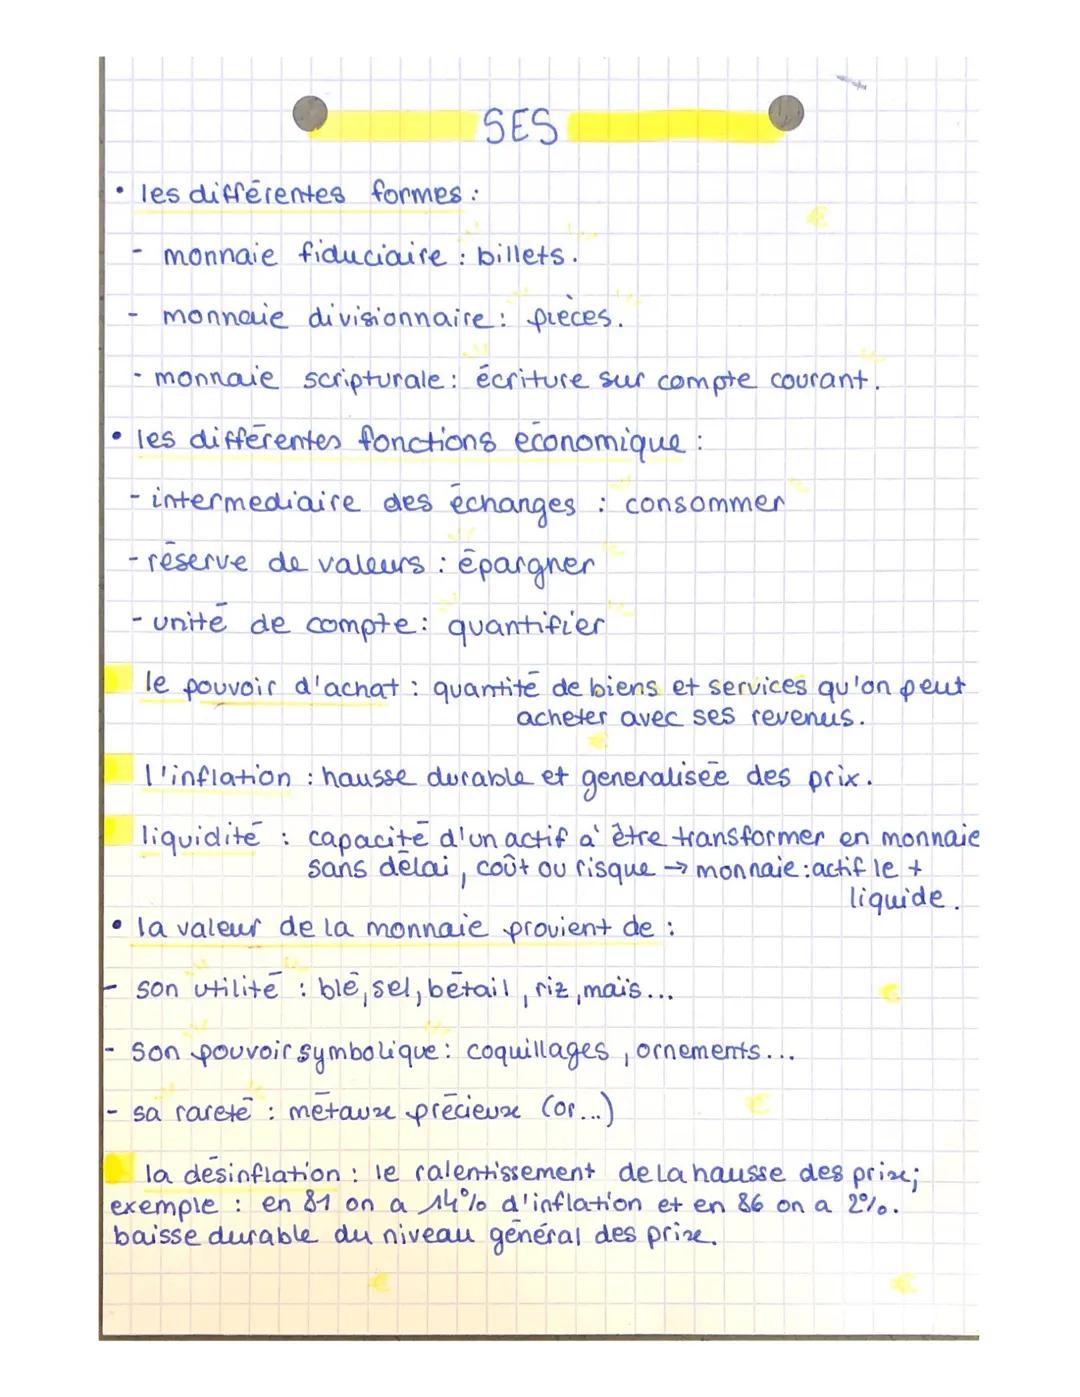 SES
• les différentes formes :
- monnaie fiduciaire : billets.
- monnaie divisionnaire : pièces.
- monnaie scripturale : écriture sur compte courant.
• les différentes fonctions économique :
- intermediaire des échanges : consommer
- réserve de valeurs : épargner
- unité de compte : quantifier
le pouvoir d'achat : quantité de biens et services qu'on peut
acheter avec ses revenus.
l'inflation : hausse durable et generalisée des prix.
liquidité : capacité d'un actif à être transformer en monnaie
sans délai, coût ou risque → monnaie : actif le +
liquide.
• la valeur de la monnaie provient de :
- son utilité : blé, sel, bétail, riz, maïs...
- son pouvoir symbolique : coquillages, ornements...
- sa rareté : métaux précieux (or...)
la désinflation : le ralentissement de la hausse des prix;
exemple : en 81 on a 14% d'inflation et en 86 on a 2%.
baisse durable du niveau général des prix.